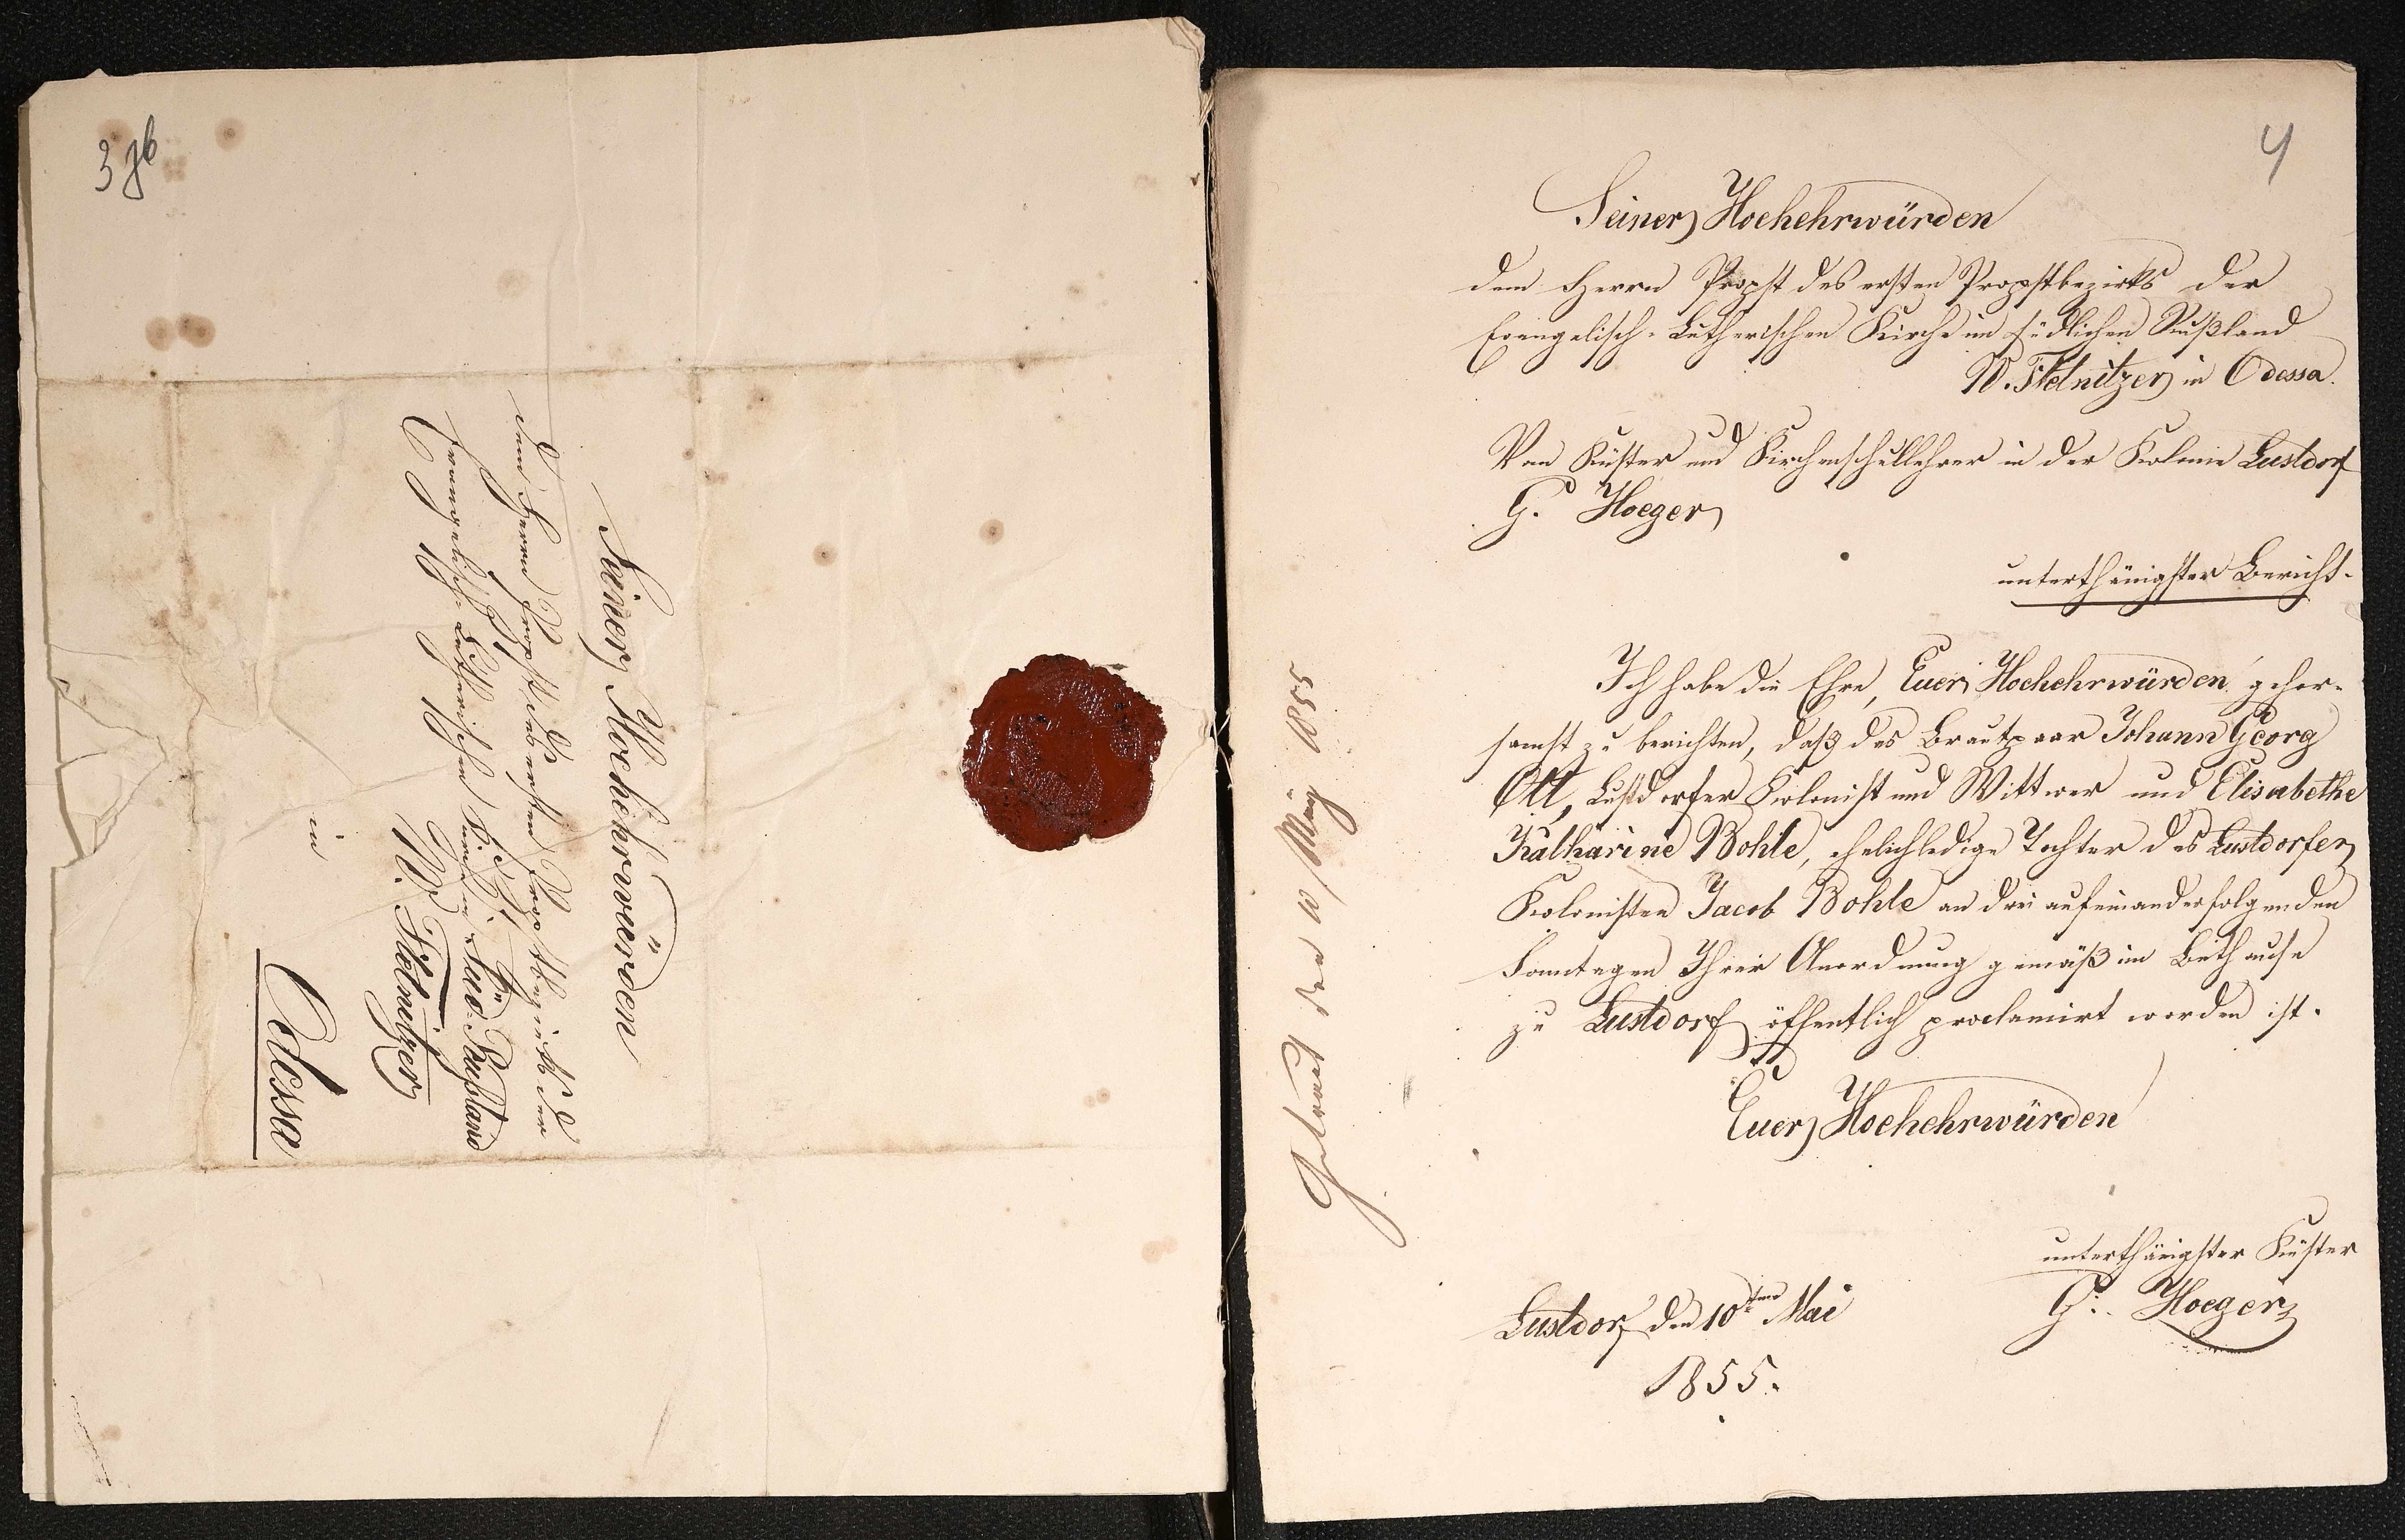 3 об
Seiner Hochehrwürden
dem Herrn Propst des ersten Propstbezirks der
Evangelisch-Lutherischen Kirche in Süd-Rußland
W. Fletnitzer
in
Odessa
4
Seiner Hochehrwürden
dem Herrn Propst des ersten Propstbezirks der
Evangelisch-Lutherischen Kirche im südlichen Rußland
W. Fletnitzer in Odessa.
Von Küster und Kirchenschullehrer in der Kolonie Lustdorf
G. Hoeger
unterthänigster Bericht.
Ich habe die Ehre, Euer Hochehrwürden gehor-
samst zu berichten, daß das Brautpaar Johann Georg
Ott, Lustdorfer Kolonist und Wittwer und Elisabethe
Katharine Bohle, ehelichledige Tochter des Lustdorfer
Kolonisten Jacob Bohle an drei aufeinanderfolgenden
Sonntagen Ihrer Anordnung gemäß im Bethause
zu Lustdorf öffentlich proclamirt worden ist.
Euer Hochehrwürden
unterthänigster Küster
G. Hoeger
Lustdorf den 10ten Mai
1855.
Getraut den May 1855